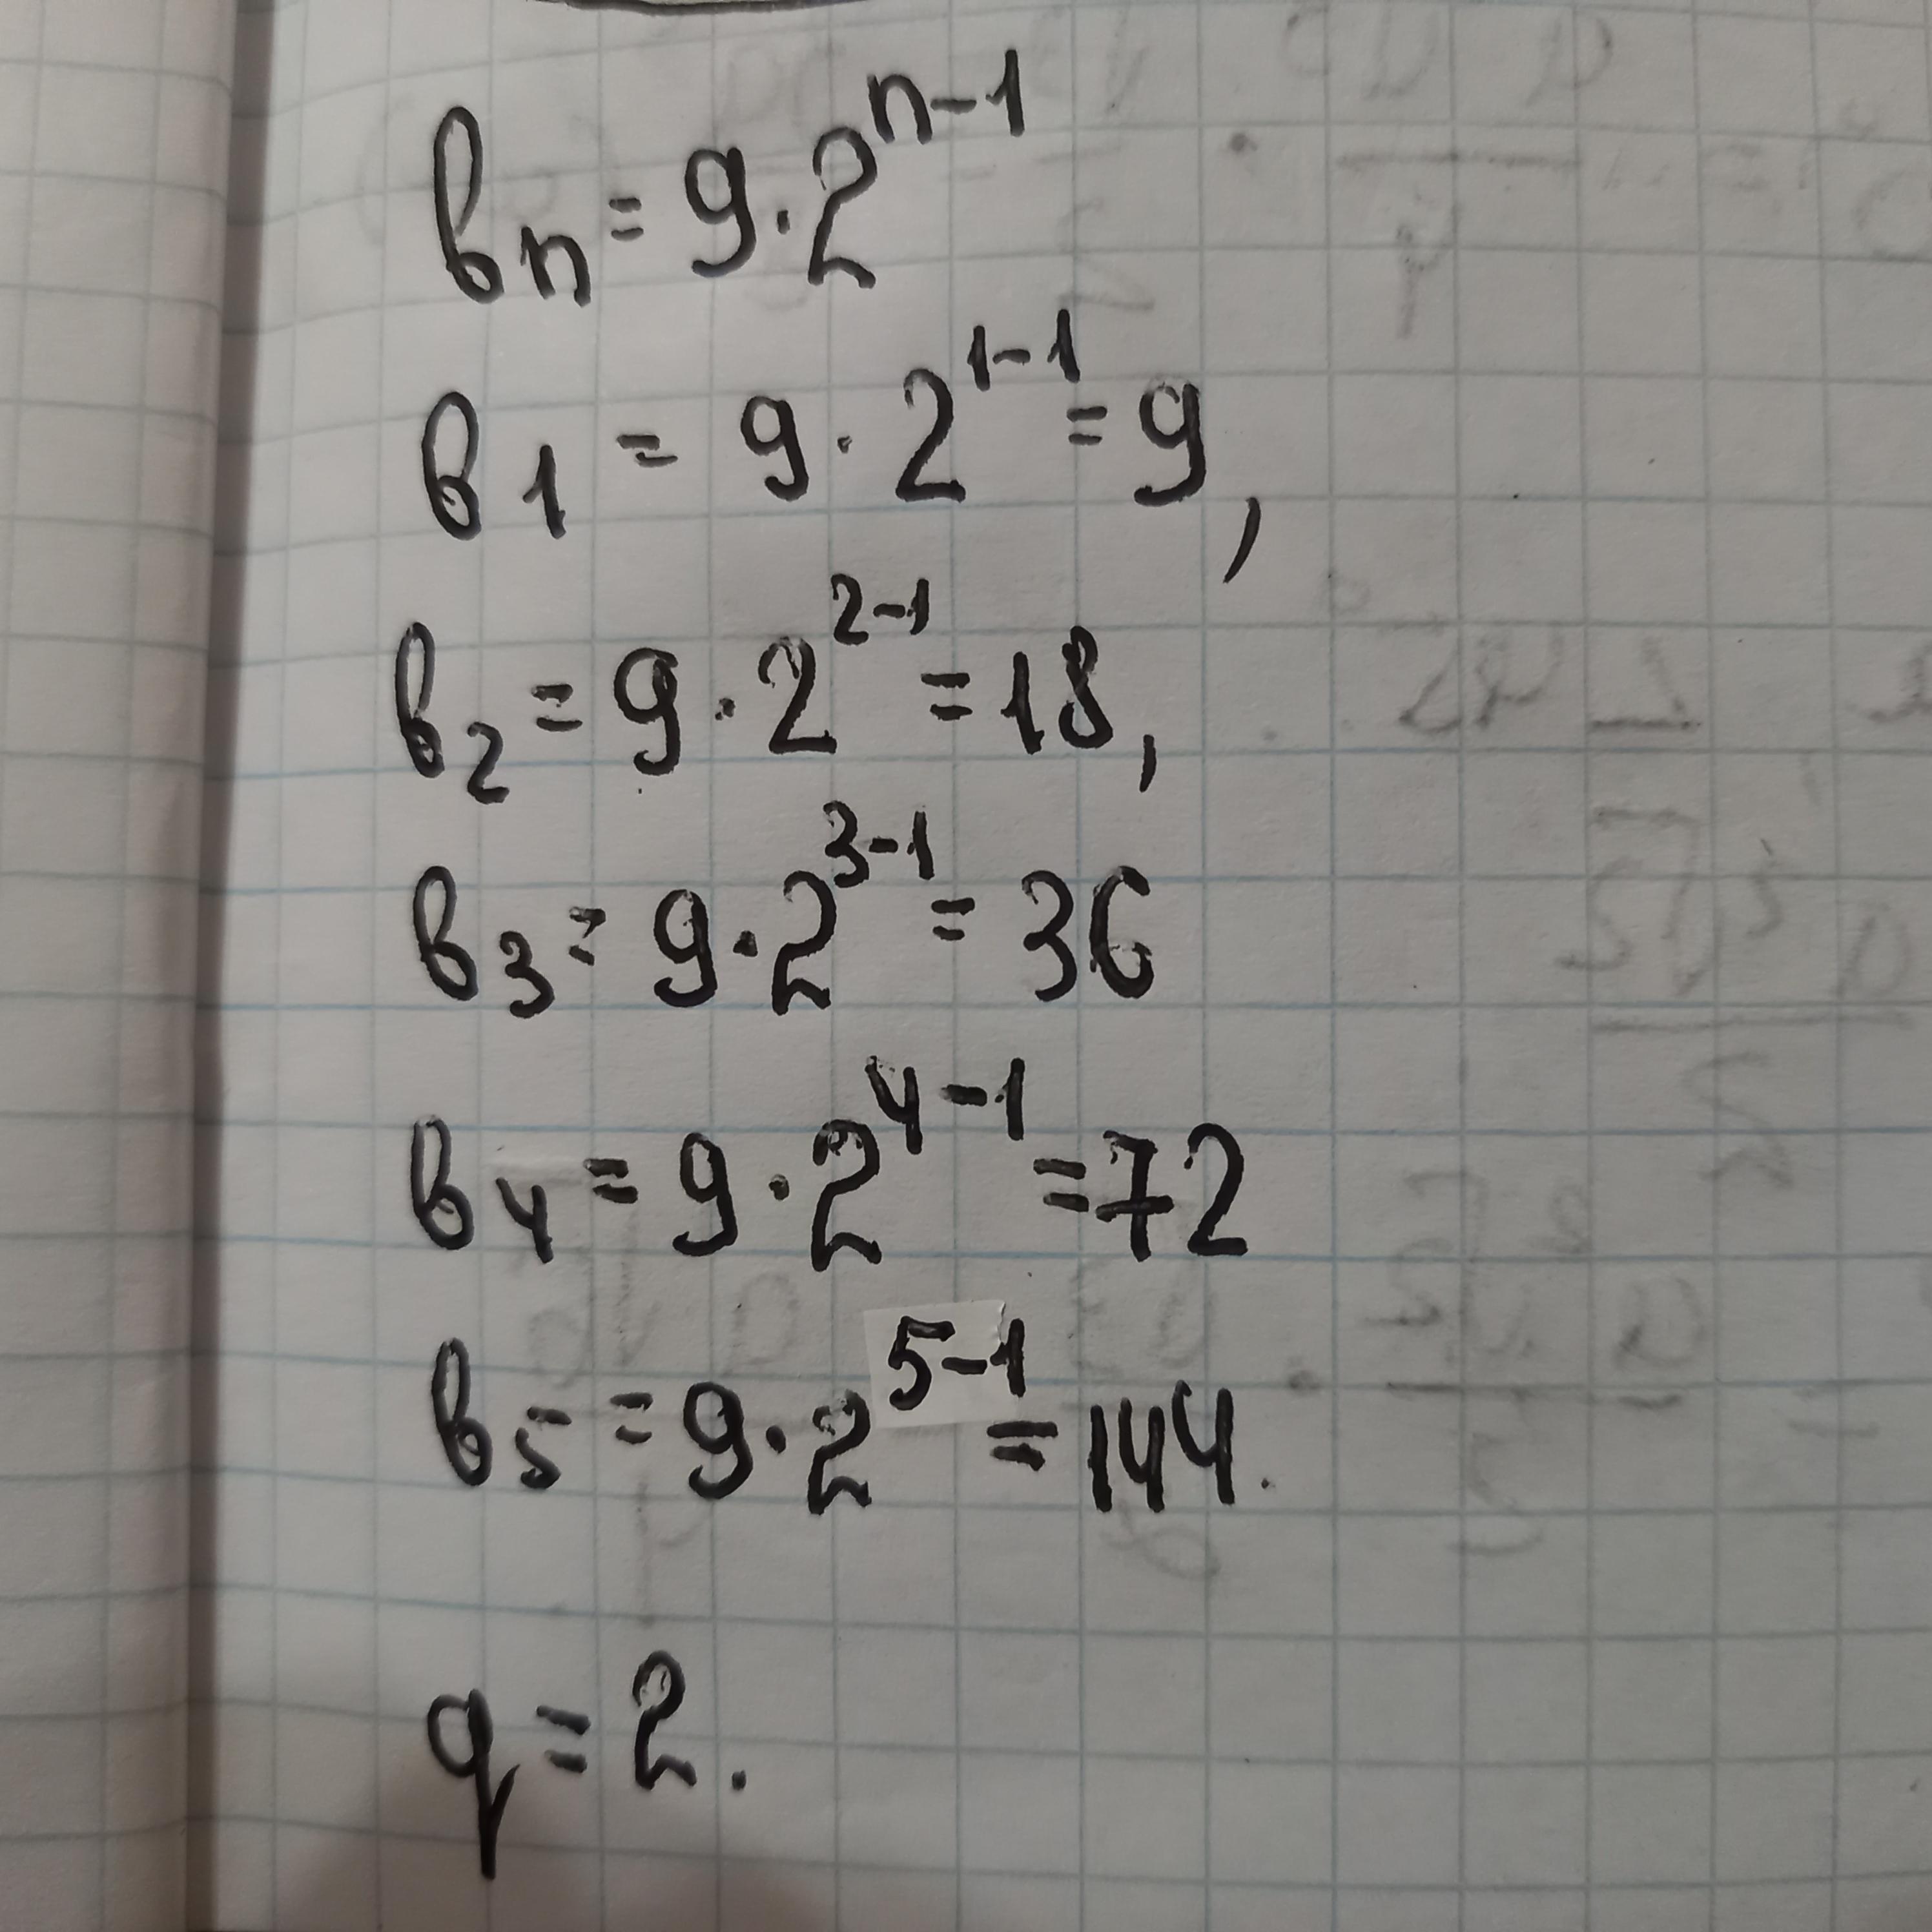 bₙ = 9·2ⁿ⁻¹
b₁ = 9·2¹⁻¹ = 9,
b₂ = 9·2²⁻¹ = 18,
b₃ = 9·2³⁻¹ = 36
b₄ = 9·2⁴⁻¹ = 72
b₅ = 9·2⁵⁻¹ = 144.
q = 2.